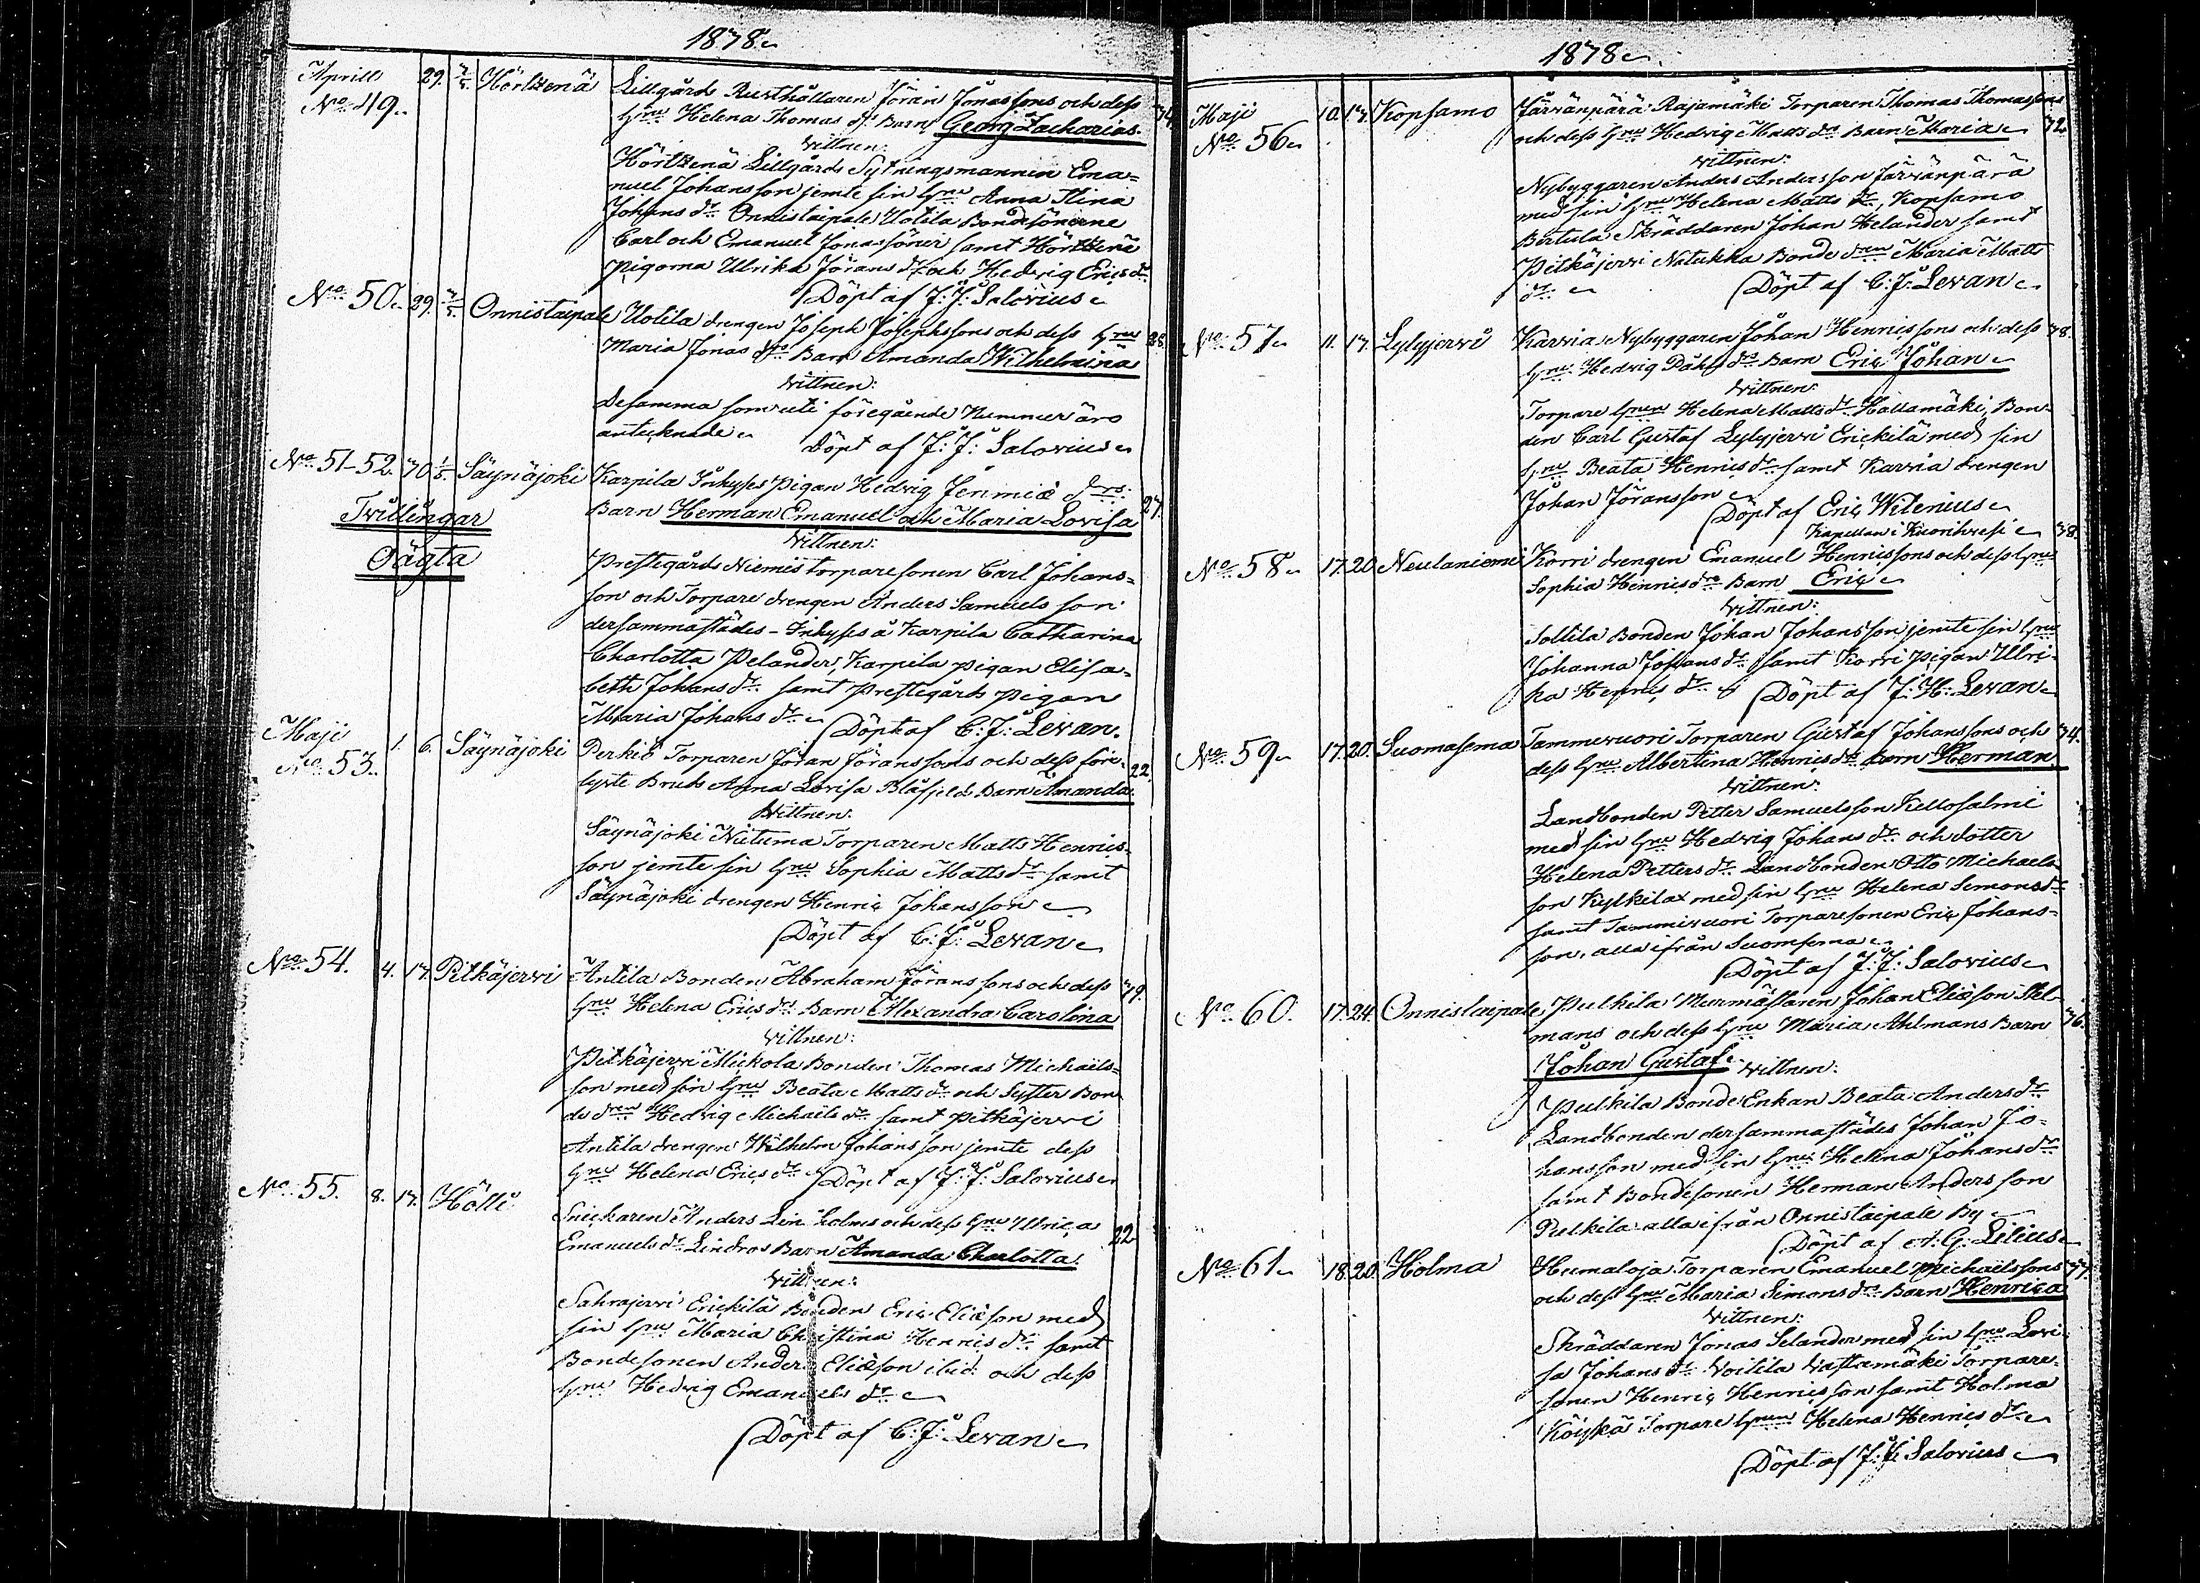 1878.
Aprill 29. 7/5 Hörtzenä Lillgårds Rusthållaren Jöran Jonassons och dess
No 49. Hru Helena Thomas dr Barn Georg Zacharias.
Vittnen:
Hörtzenä Lillgårds Sytningsmannen Ema=
nuel Johansson jemte sin Hru Anna Stina
Johans dr Onnistaipale Uotila Bondesönerne
Carl och Emanuel Jonassöner samt Hörtzenä
Pigorna Ulrika Jörans dr och Hedvig Erics dr
Döpt af J: J: Salovius
No 50. 29. 7/5 Onnistaipale Uotila drengen Joseph Josephssons och dess Hru 38.
Maria Jonas drs Barn Amanda Wilhelmina
Vittnen:
Desamma som uti föregående Nummer äro
antecknade Döpt af J: J: Salovius
No 51-52. 30 1/5 Säynäjoki Karpila Inhyses pigan Hedvig Jeremiæ drs 27.
Tvillingar Barn Herman Emanuel och Maria Lovisa
Oägta Vittnen:
Prestegårds Niemis torparesonen Carl Johans=
son och Torpare drengen Anders Samuels son
dersammastädes - Inhyses å Karpila Catharina
Charlotta Pelander, Karpila pigan Elisa=
beth Johans dr samt Prestegårds pigan
Maria Johans dr Döpt af C: J: Levan.
Maji
No 53. 1. 6. Säynäjoki Perkiö Torparen Jöran Jöranssons och dess före= 22.
lyste Bruds Anna Lovisa Blåfjelds Barn Amanda
Vittnen:
Säynäjoki Nietuma Torparen Matts Henrics=
son jemte sin Hru Sophia Matts dr samt
Säynäjoki drengen Henric Johansson
Döpt af C: J: Levan
No 54. 4. 17. Pitkäjervi Antila Bonden Abraham Jöranssons och dess 39.
Hru Helena Erics drs Barn Alexandra Carolina
Vittnen:
Pitkäjervi Mickola Bonden Thomas Michaels=
son med sin Hru Beata Matts dr och Syster Bon
de dren Hedvig Michaels dr samt Pitkäjervi
Antila drengen Wilhelm Johansson jemte dess
Hru Helena Erics dr Döpt af J: J: Salovius
No 55. 8. 17. Hölli Snickaren Anders Lin holms och dess Hru Ulrica 22
Emanuels dr Lindros Barn Amanda Charlotta.
Vittnen:
Sahrajervi Erickilä Bonden Eric Eliæson med
sin Hru Maria Christina Henrics dr samt
Bondesonen Anders Eliæson ibid: och dess
Hru Hedvig Emanuels dr
Döpt af C: J: Levan
1878.
Maji 10. 17. Kopsamo Järvänpärä Rajamäki Torparen Thomas Thomassons
No 56 och dess Hru Hedvig Matts drs Barn Maria 32
Vittnen:
Nybyggaren Anders Andersson Järvänpärä
med sin Hru Helena Matts dr, Kopsamo
Bertula Skräddaren Johan Helander samt
Pitkäjervi Natukka Bonde dren Maria Matts
dr Döpt af C: J: Levan
No 57 11. 17. Lylyjervi Karria Nybyggaren Johan Henricssons och dess 38.
Hru Hedvig Påhls drs Barn Eric Johan
Vittnen:
Torpare Hrun Helena Matts dr Hallamäki, Bon=
den Carl Gustaf Lylyjervi Erickilä med sin
Hru Beata Henrics dr samt Karria drengen
Johan Jöransson
Döpt af Eric Wilenius
Kapellan i Kuorihvesi
No 58 17. 20. Neulaniemi Korri drengen Emanuel Henricssons och dess Hru 38.
Sophia Henrics drs Barn Eric
Vittnen:
Sollila Bonden Johan Johansson jemte sin Hru
Johanna Johans dr samt Korri pigan Ulri=
ka Henrics dr Döpt af J: H: Levan
No 59 17. 20. Suomasema Tammivuori Torparen Gustaf Johanssons och 34.
dess Hru Albertina Henrics drs barn Herman
Vittnen:
Landbonden Petter Samuelsson Kellosalmi
med sin Hru Hedvig Johans dr och dotter
Helena Petters dr Landbonden Otto Michaels=
son Kylkilax med sin Hru Helena Simons dr
samt Tammivuori Torparesonen Eric Johans=
son, alla ifrån Suomsema
Döpt af J: J: Salovius
No 60. 17. 24. Onnistaipale Pulkila Murmästaren Johan Eliæson Stel=
mans och dess Hru Maria Ahlmans Barn 36.
Johan Gustaf. Vittnen:
Pulkila Bonde Enkan Beata Anders dr
Landbonden dersammastädes Johan Jo=
hansson med sin Hru Helena Johans dr
samt Bondesonen Herman Andersson
Pulkila alla ifrån Onnistaipale By
Döpt af A. G. Lilius
No 61 18. 20. Holma Humaloja Torparen Emanuel Michaelssons 37.
och dess Hru Maria Simons drs Barn Henrica
Vittnen:
Skräddaren Jonas Selander med sin Hru Lovi=
sa Johans dr Voitila Vastamäki Torpare=
sonen Henric Henricsson samt Holma
Köyskä Torpare Hrun Helena Henrics dr
Döpt af J: J: Salovius